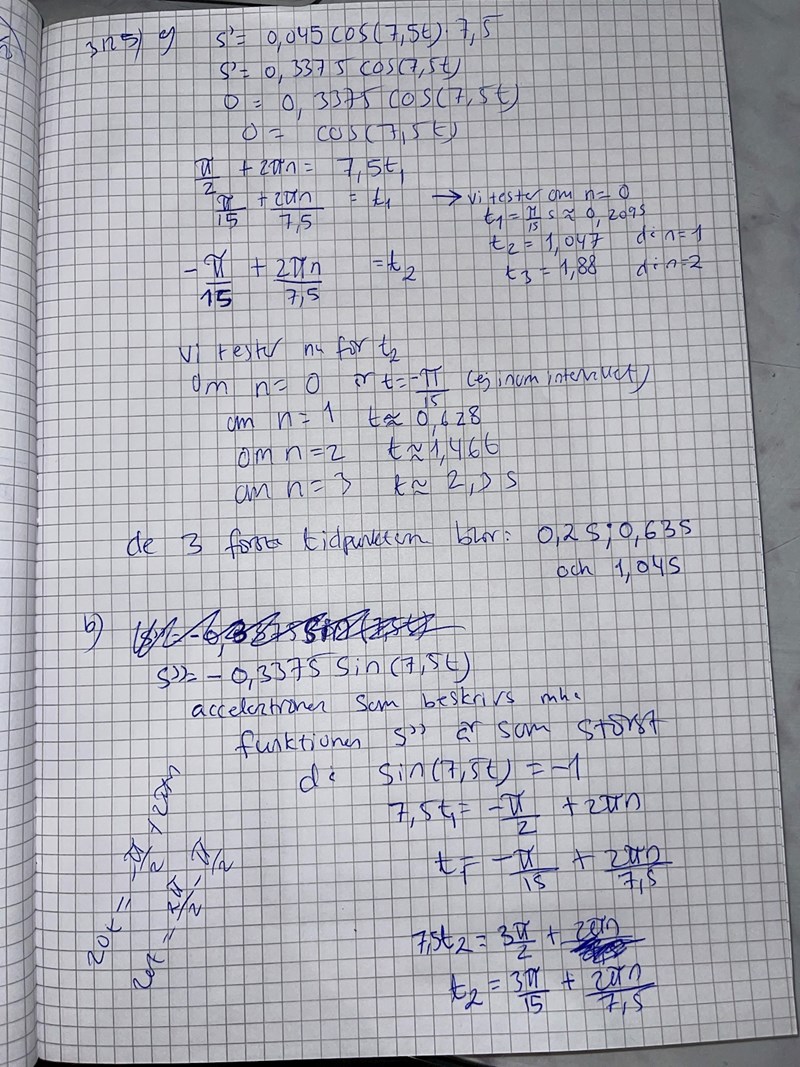 3125) a) s' = 0,045 cos(7,5t) · 7,5
s' = 0,3375 cos(7,5t)
0 = 0,3375 cos(7,5t)
0 = cos(7,5t)
π/2 + 2πn = 7,5t₁
π/15 + 2πn/7,5 = t₁
→ vi tester om n = 0
t₁ = π/15 s ≈ 0,209s
t₂ = 1,047 då n=1
t₃ = 1,88 då n=2
-π/15 + 2πn/7,5 = t₂
vi tester nu för t₂
Om n = 0 är t = -π/15 (ej inom intervallet)
om n = 1 t ≈ 0,628
om n = 2 t ≈ 1,466
om n = 3 t ≈ 2,3 s
de 3 första tidpunkten blir: 0,2s; 0,63s
och 1,04s
b)
s'' = - 0,3375 sin(7,5t)
accelerationen som beskrivs mha
funktionen s'' är som störst
då sin(7,5t) = -1
7,5t₁ = -π/2 + 2πn
t₁ = -π/15 + 2πn/7,5
7,5t₂ = 3π/2 + 2πn
t₂ = 3π/15 + 2πn/7,5